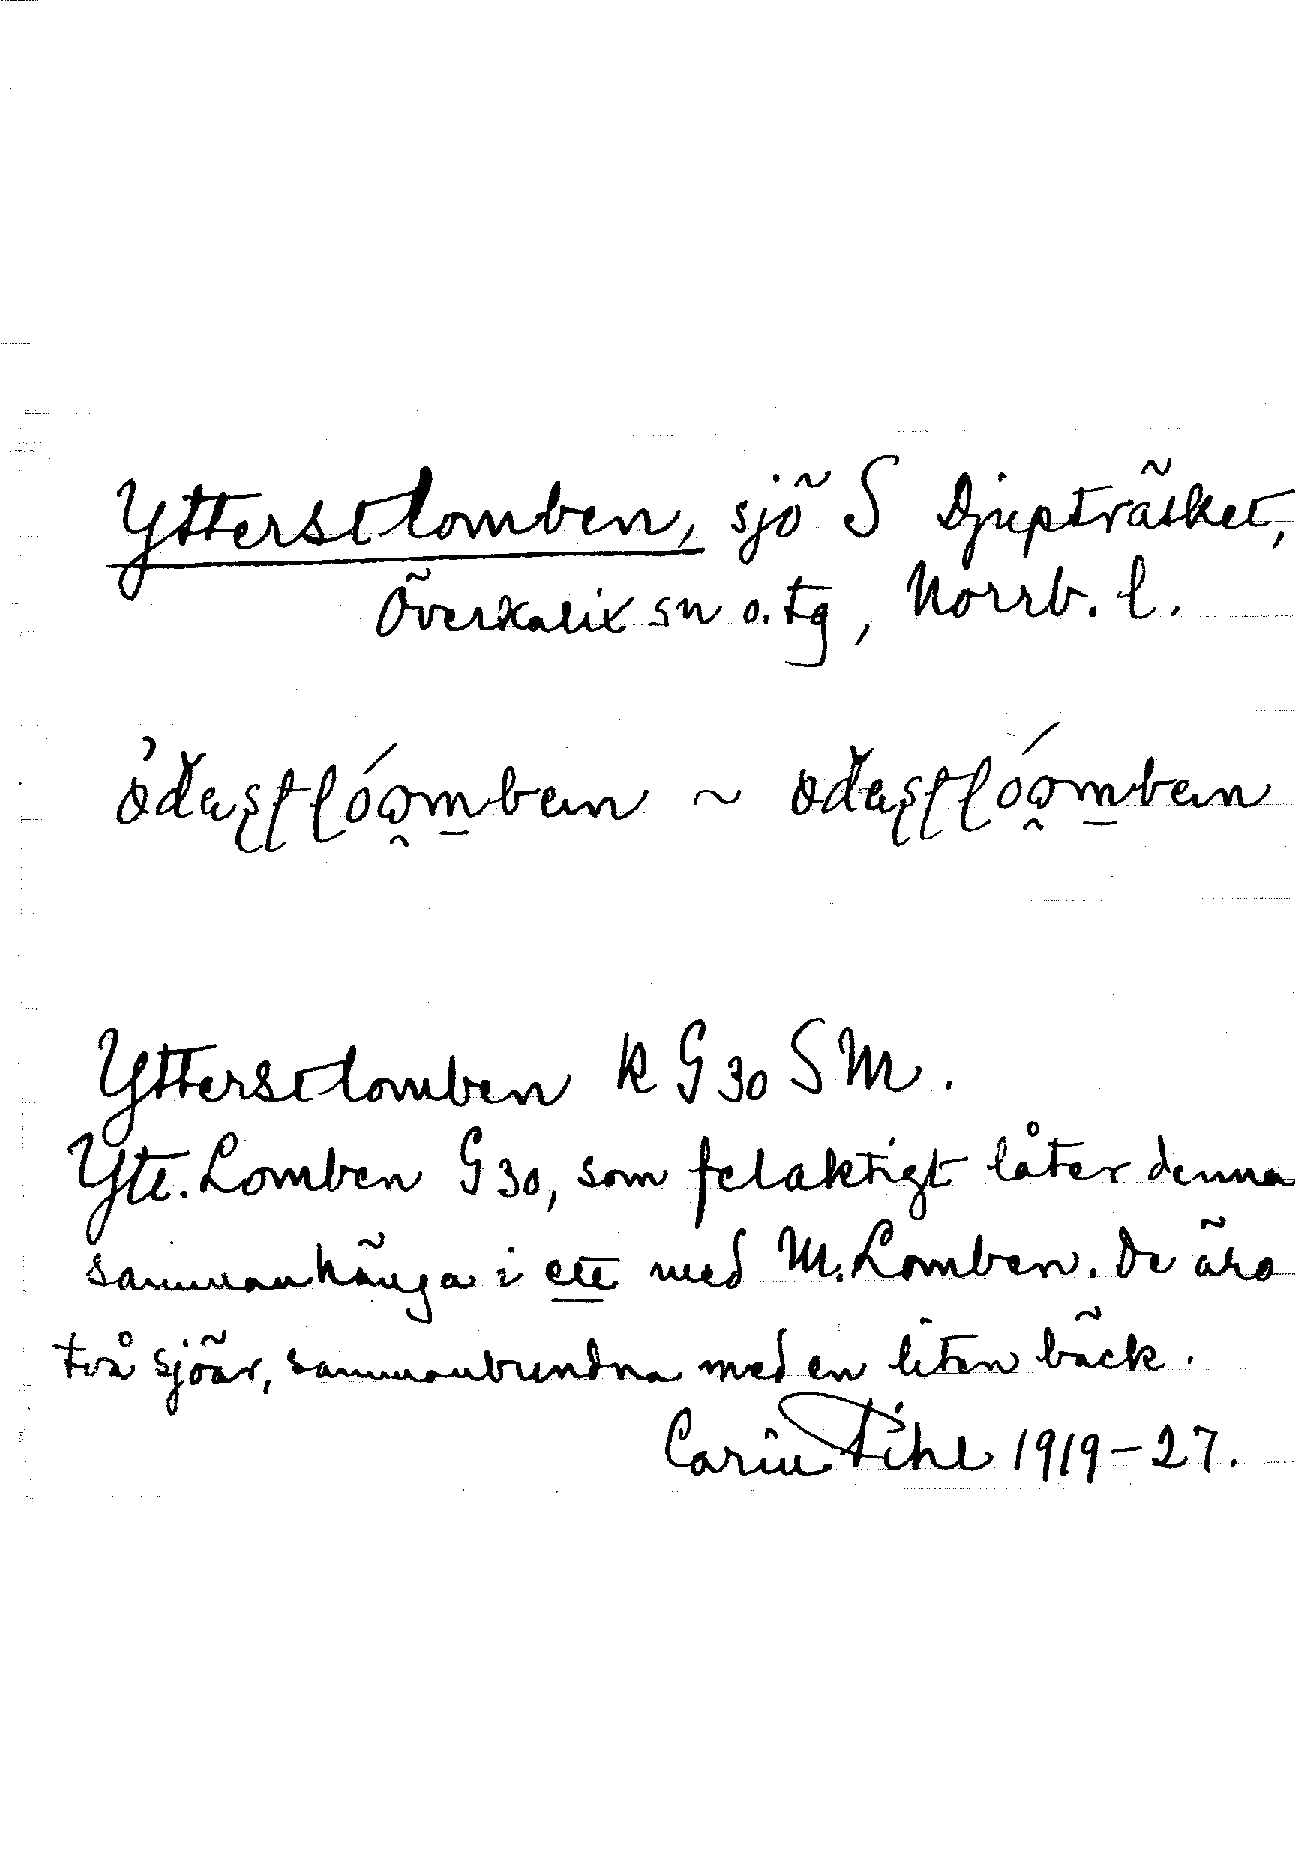 Ytterstlomben, sjö S Djupträsket,
Överkalix sn o. tg, Norrb. l.
Ytterstlomben k G 30 S M.
Ytt. Lomben G 30, som felaktigt låter denna
sammanhänga i ett med M. Lomben. De äro
två sjöar, sammanbundna med en liten bäck.
Carin Pihl 1919-27.